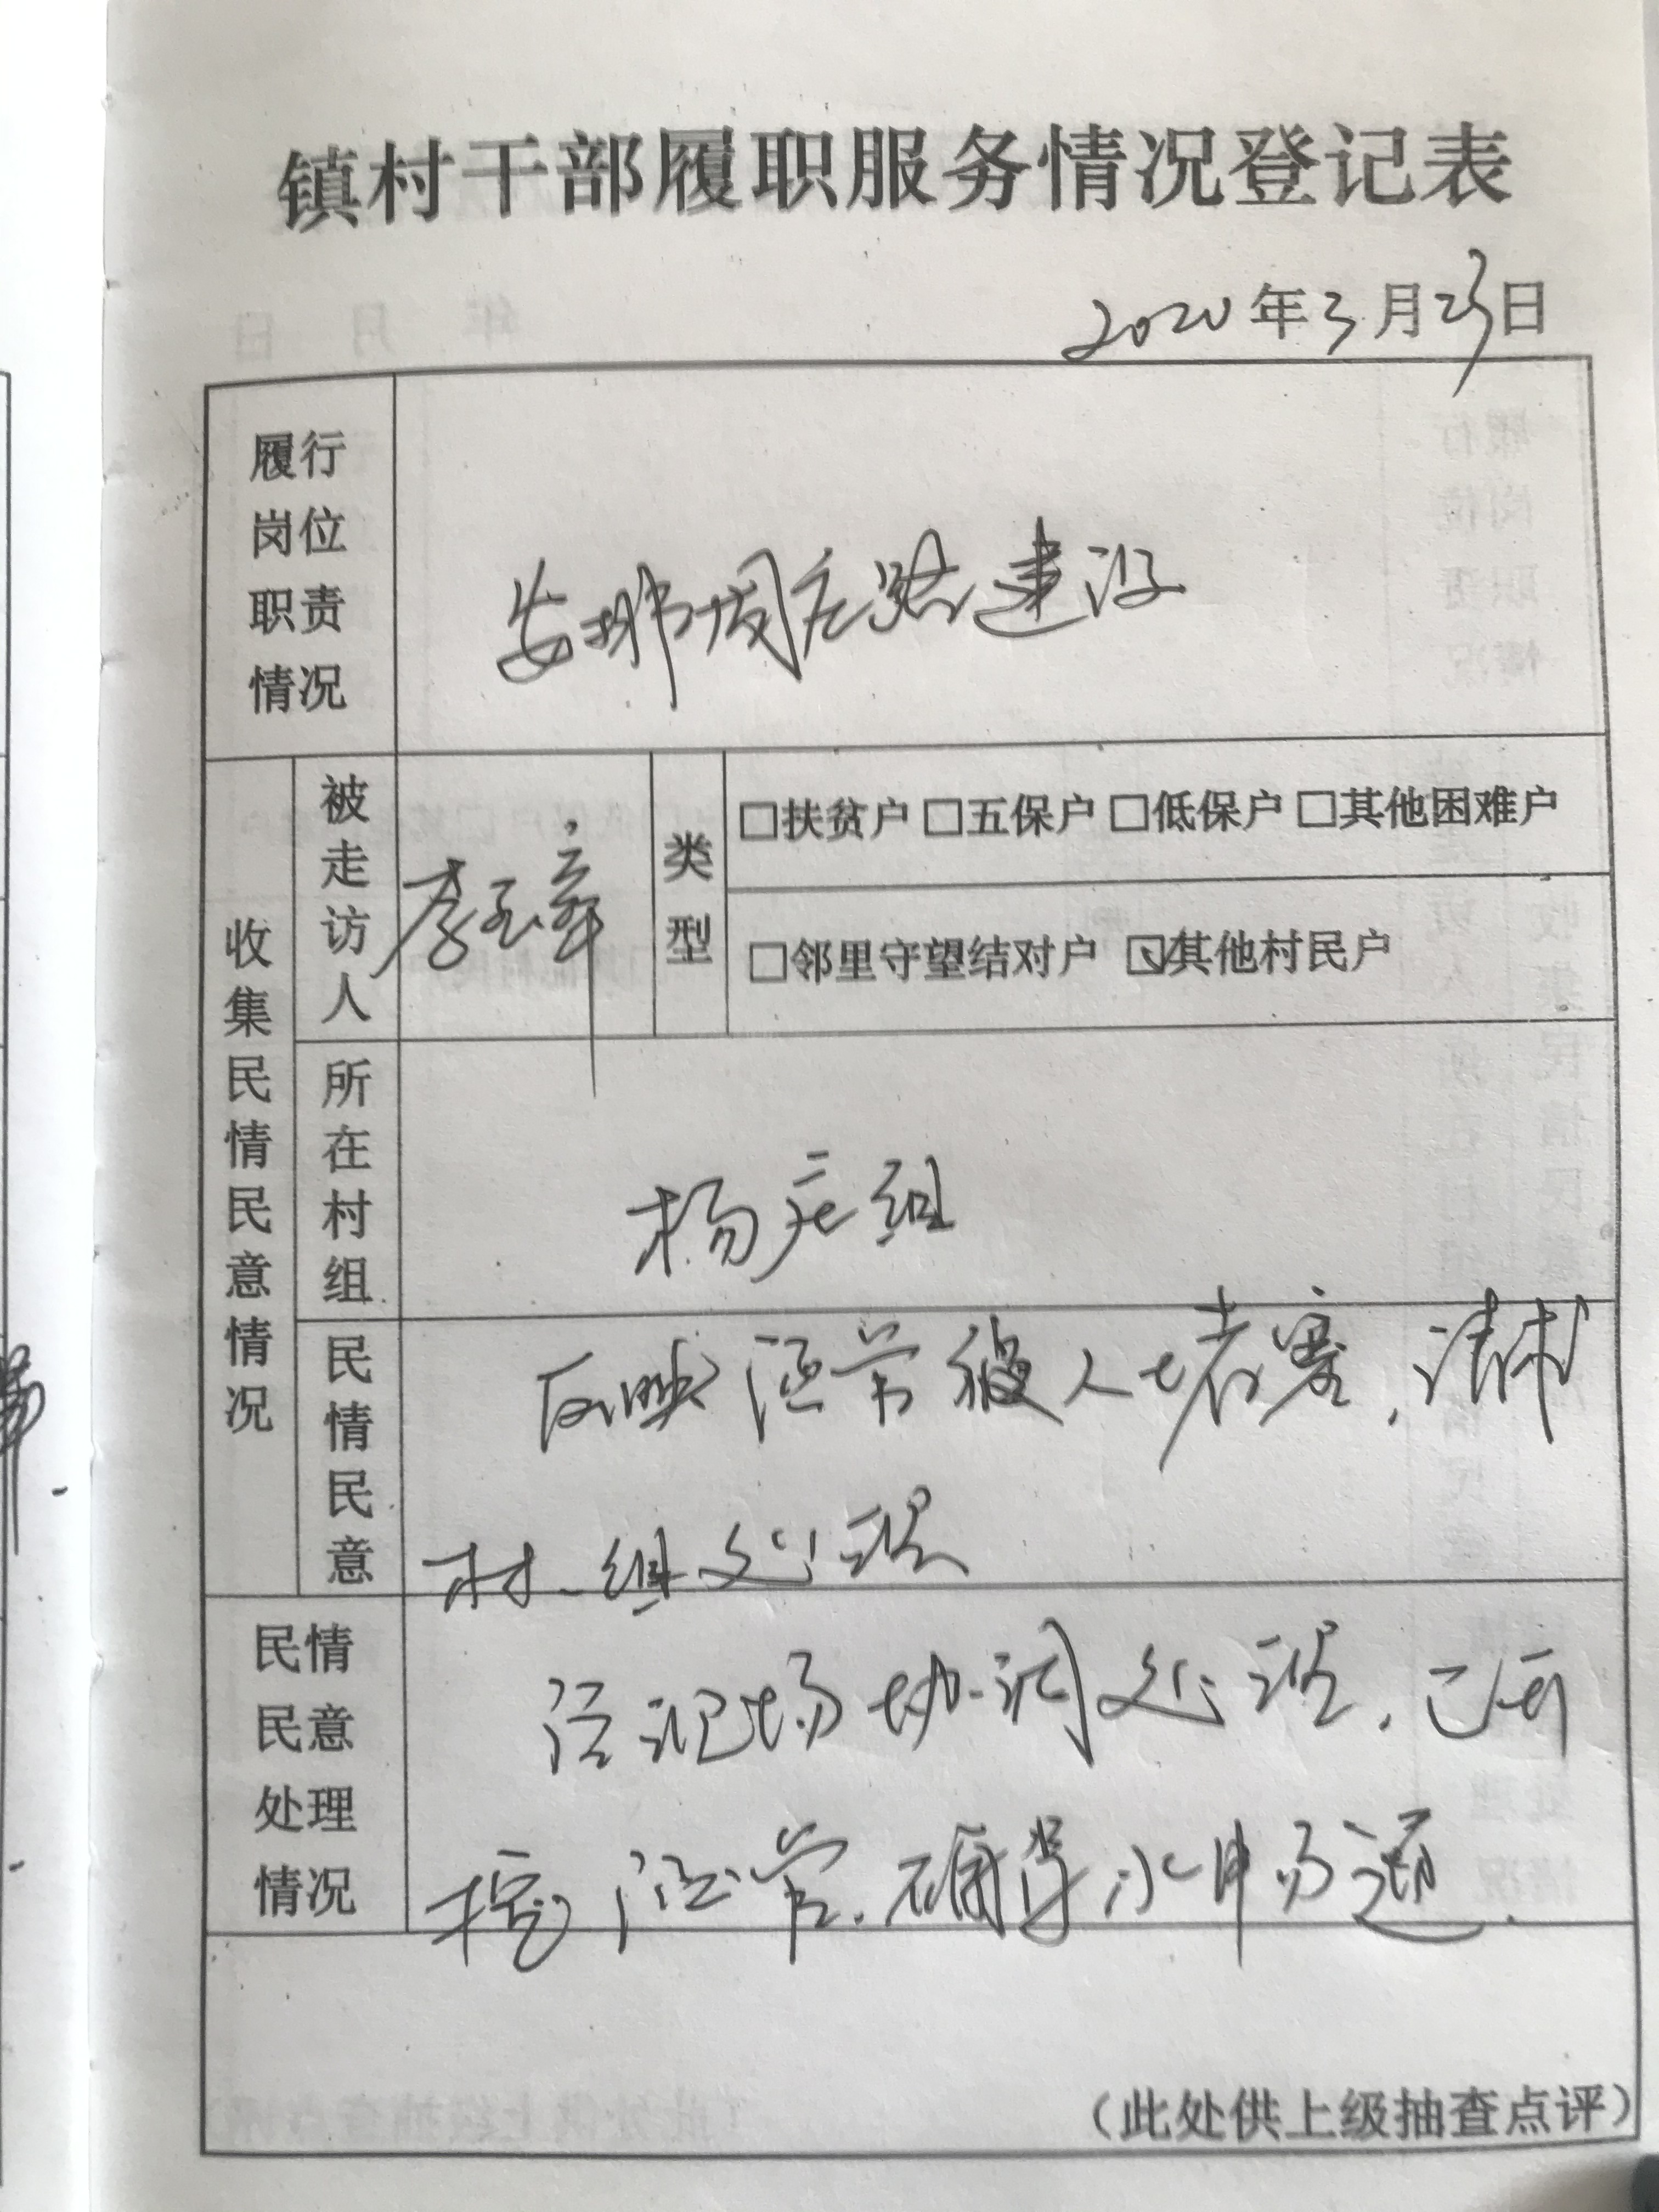 镇村干部履职服务情况登记表
2020年3月23日
履行岗位职责情况
安排周庄路建设
收集民情民意情况
被走访人
李玉章
类型
□扶贫户 □五保户 □低保户 □其他困难户
□邻里守望结对户 ☑其他村民户
所在村组
杨庄组
民情民意
反映涵管被人堵塞,请求
村、组处理
民情民意处理情况
经现场协调处理,已
挖涵管,确保水
(此处供上级抽查点评)